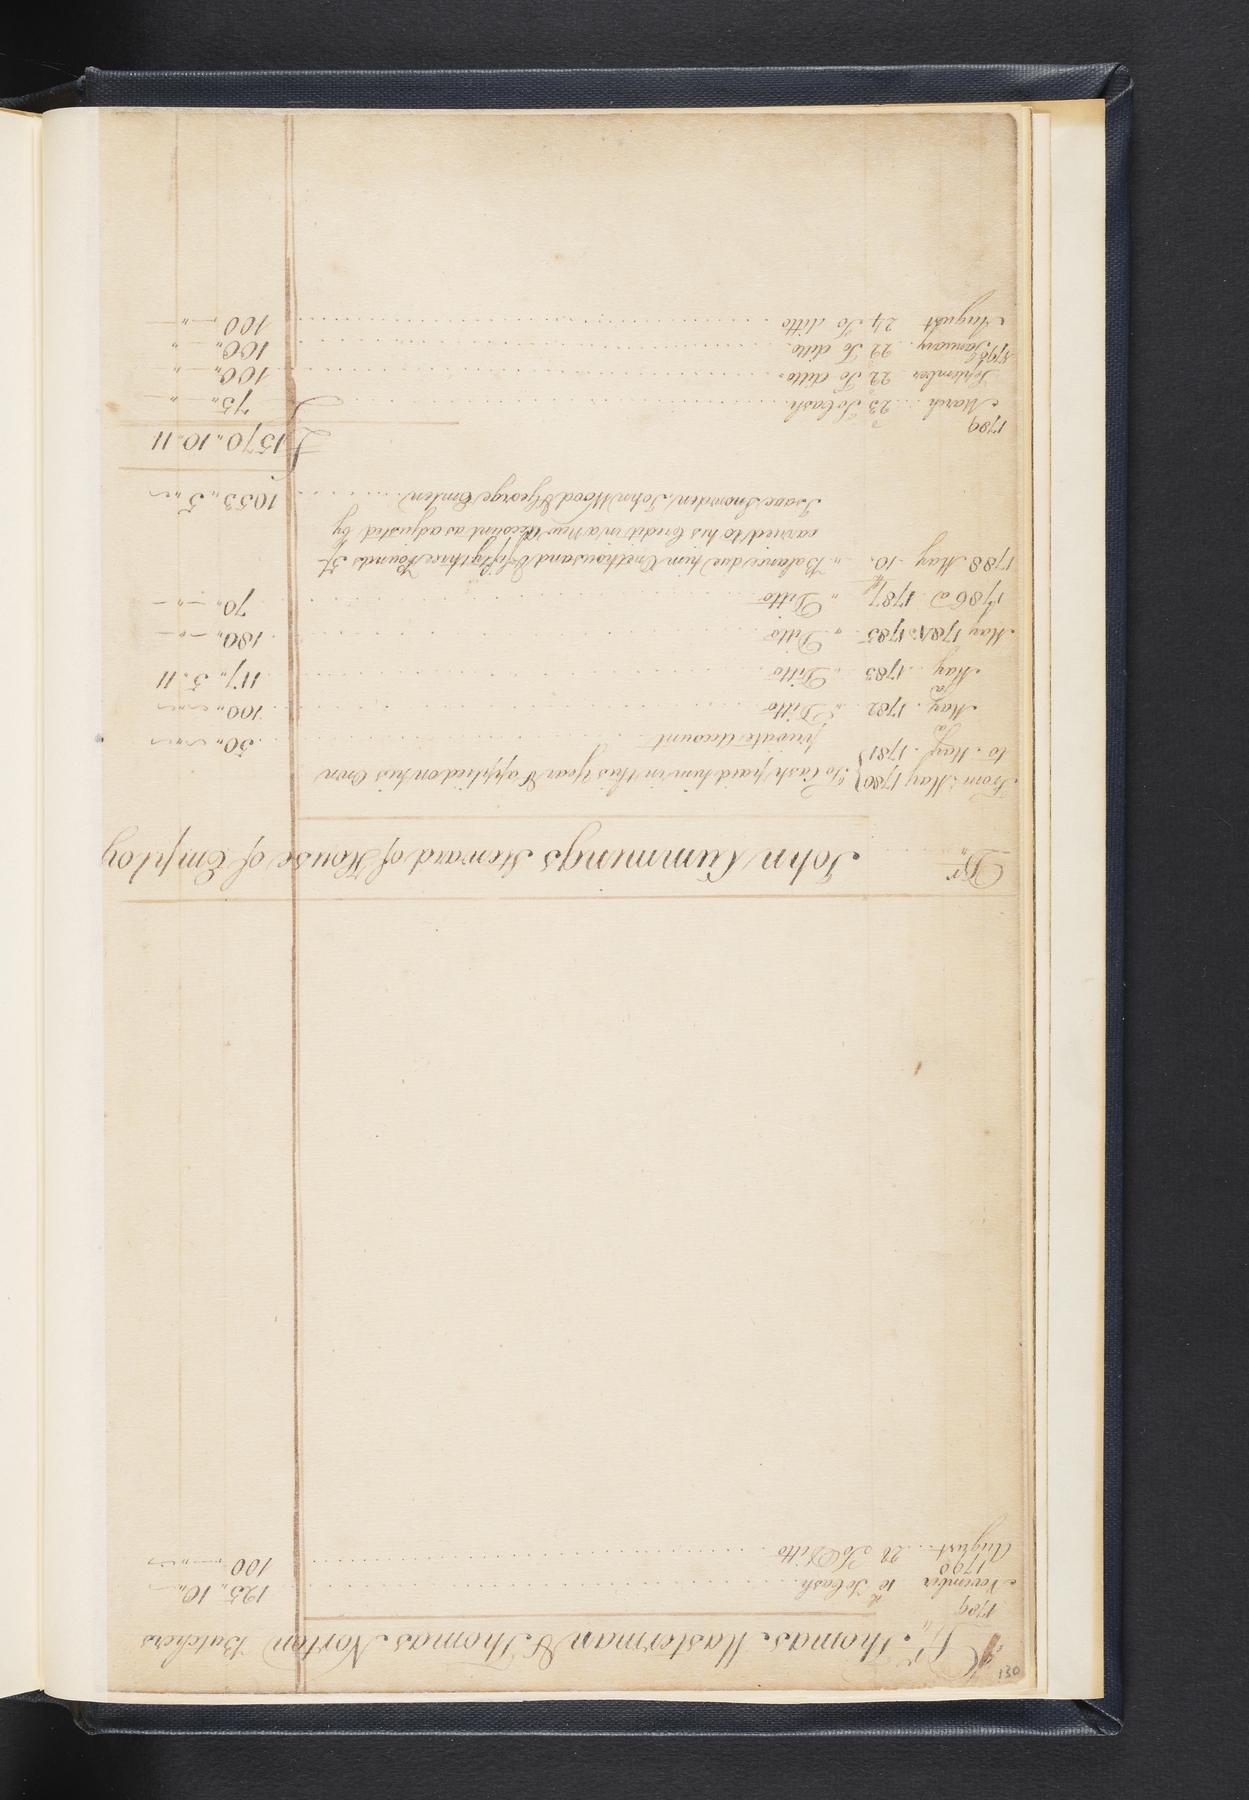 130
Dr. Thomas Masterman & Thomas Norton Butchers
1789
November 10 To Cash 125,, 10,,
1790
August 21 To Ditto 100
Dr John Cummings Steward of House of Employ
From May 1780 } To Cash paid him in this year & applied on his Own
to May 1781 } private Account 50,,
May 1782 ,, Ditto 100,,
May 1783 ,, Ditto 117,, 5. 11
May 1784 & 1785 ,, Ditto 180,,
1786 a 1787 ,, Ditto 70,,
1788 May 10. ,, Balance due him One thousand & fifty three Pounds 5/
carried to his Credit in a New Account as adjusted by
Isaac Snowden, John Wood & George Emlen 1053,, 5,,
£ 1570,, 10,, 11
1789
March 23 To Cash £ 75,,
September 22 To ditto 100,,
January 22 To ditto 100,,
August 24 To ditto 100